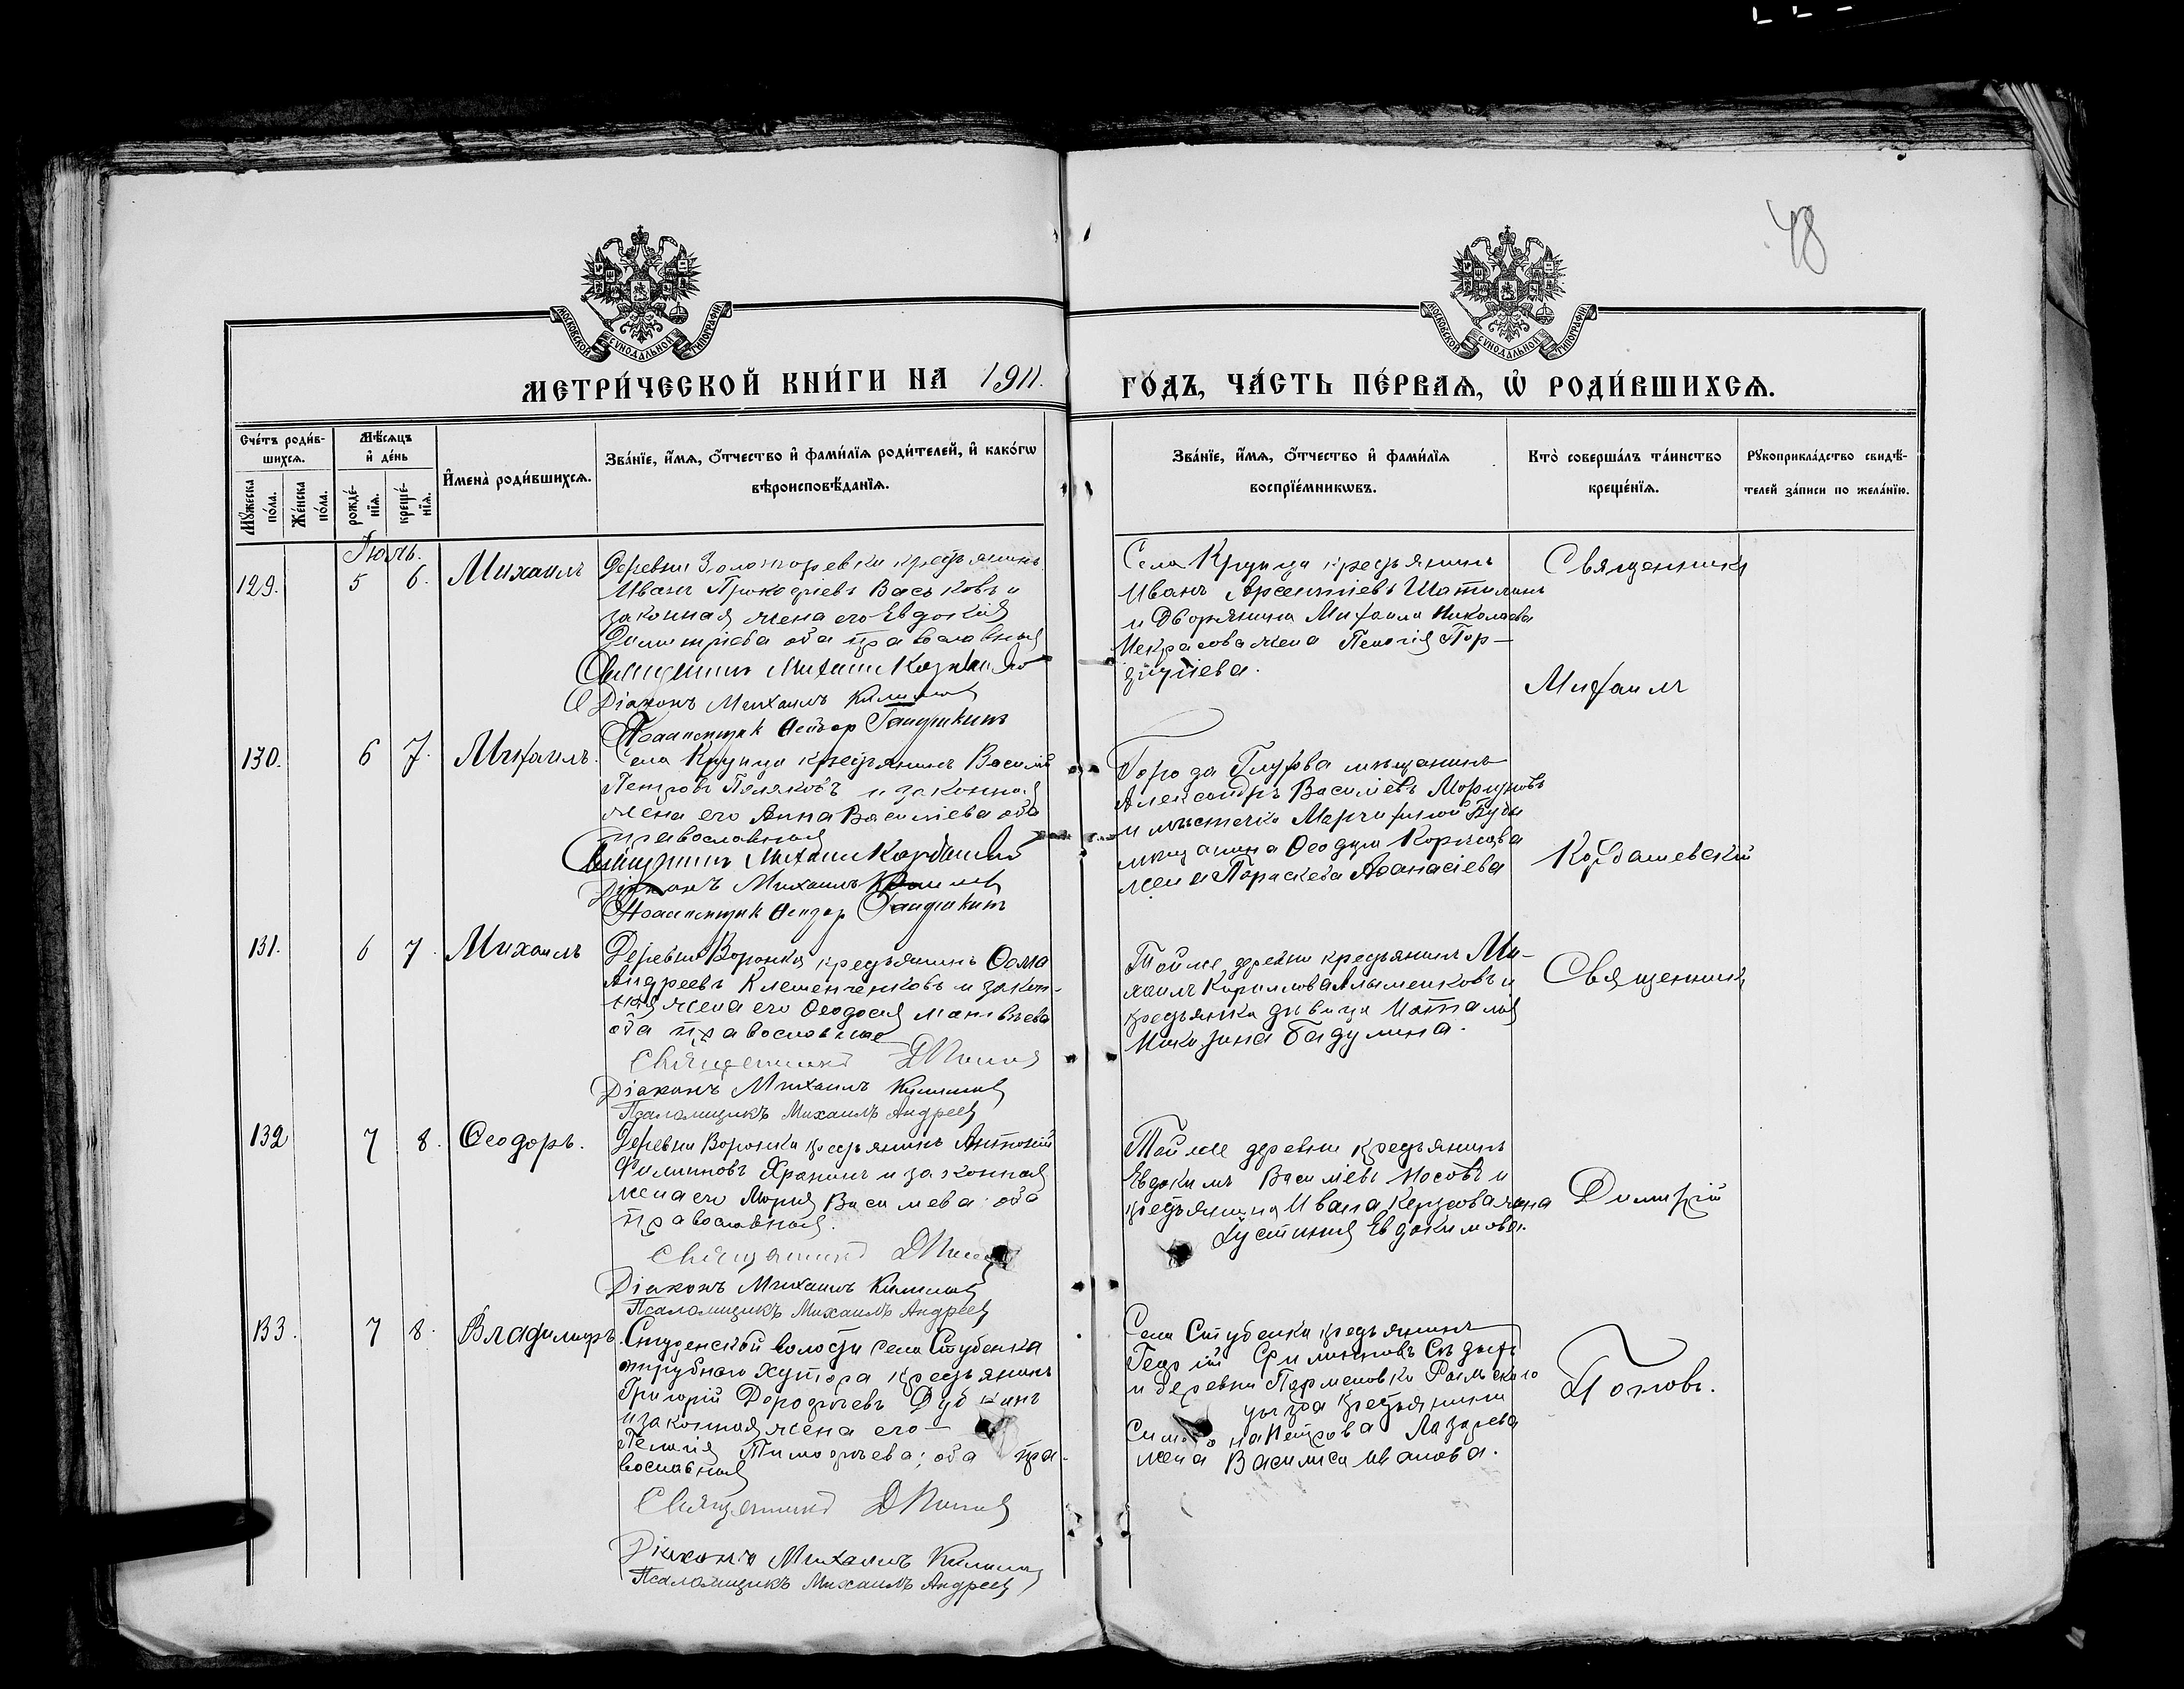 48
МОСКОВСКОЙ СѴНОДАЛЬНОЙ ТИПОГРАФІИ
МОСКОВСКОЙ СѴНОДАЛЬНОЙ ТИПОГРАФІИ
МЕТРИ́ЧЕСКОЙ КНИ́ГИ НА 1911. ГО́ДЪ, ЧА́СТЬ ПЕ́РВАѦ, Ѡ҆ РОДИ́ВШИХСѦ.
Сче́тъ роди́в-
шихсѧ.
Мꙋ́жеска по́ла.
Же́нска по́ла.
Мѣ́сѧцъ
и҆ де́нь
рожде́-
нїѧ.
креще́-
нїѧ.
И҆мена̀ роди́вшихсѧ.
Зва́нїе, и҆́мѧ, ѻ҆́тчество и҆ фами́лїѧ роди́телей, и҆ како́гѡ
вѣроисповѣ́данїѧ.
Зва́нїе, и҆́мѧ, ѻ҆́тчество и҆ фами́лїѧ
воспрїе́мникѡвъ.
Кто̀ соверша́лъ та́инство
креще́нїѧ.
Рꙋкоприкла́дство свидѣ́-
телей за́писи по жела́нїю.
Іюль.
129. 5 6. Михаилъ
Деревни Золотаревки крестьянинъ
Иванъ Прокофіевъ Васьковъ и
законная жена его Евдокія
Димитріева оба православныя
Священникъ Михаилъ Кордашевскій
Діаконъ Михаилъ
Псаломщик
Села Крупца крестьянинъ
Иванъ Арсентіевъ Шатилинъ
и Дворянина Михаила Николаева
Некрасова жена Пелагія Пор-
фиріева.
Священникъ
Михаилъ
130. 6 7. Михаилъ.
Села Крупца крестьянинъ Василій
Петровъ Поляковъ и законная
жена его Анна Васильева оба
православныя
Священникъ Михаилъ Кордашевскій
Діаконъ Михаилъ
Псаломщик
Города Глухова мѣщанинъ
Александръ Васильевъ
и мѣстечка Марчихиной Буды
мѣщанина Ѳеодора
жена Параскева Аѳанасіева
Кордашевскій
131. 6 7. Михаилъ
Деревни Воронка крестьянинъ Ѳома
Андреевъ Клеменченковъ и закон-
ная жена его Ѳеодосія
оба православные
Священникъ Д Поповъ
Діаконъ Михаилъ
Псаломщикъ Михаилъ Андреевъ
Той же деревни крестьянинъ Ми-
хаилъ Кириллова и
крестьянка дѣвица Наталія
Бадулина.
Священникъ
132 7 8. Ѳеодоръ.
Деревни Воронка крестьянинъ Антоній
Филипповъ Храпинъ и законная
жена его Марія Васильева оба
православныя.
Священникъ Д
Діаконъ Михаилъ
Псаломщикъ Михаилъ Андреевъ
Той же деревни крестьянинъ
Евдокимъ Васильевъ Носовъ и
крестьянина Ивана жена
Іустинія Евдокимова.
Димитрій
133. 7 8. Владимиръ.
волости села Студенка
отрубного хутора крестьянинъ
Григорій Дорофеевъ
и законная жена его
Пелагія Тимофеева; оба пра-
вославныя
Священникъ Д Поповъ
Діаконъ Михаилъ
Псаломщикъ Михаилъ Андреевъ
Села Студенка крестьянинъ
Георгій Филипповъ
и деревни Пармёновки Рыльскаго
уѣзда крестьянина
Петрова Лазарева
жена Василиса Иванова.
Поповъ.